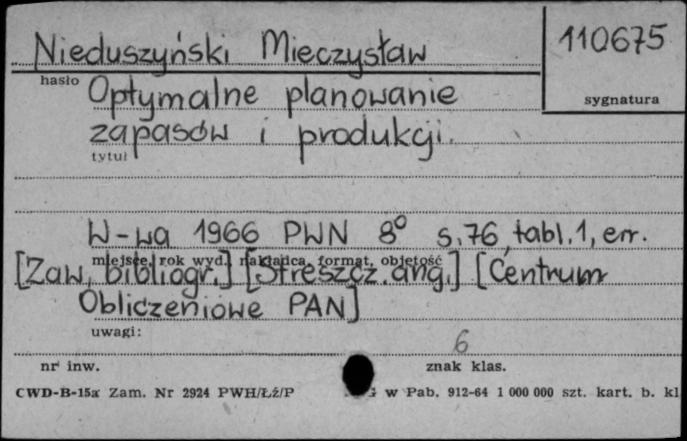 Nieduszyński Mieczysław
110675
hasło
sygnatura
Optymalne planowanie
zapasów i produkcji.
tytuł
W-wa 1966 PWN 8° s.76, tabl.1, err.
miejsce, rok wyd., nakładca, format, objętość
[Zaw. bibliogr.] [Streszcz. ang.] [Centrum
Obliczeniowe PAN]
uwagi:
6
nr inw.
znak klas.
CWD-B-15a Zam. Nr 2924 PWH/Łź/P
w Pab. 912-64 1 000 000 szt. kart. b. kl